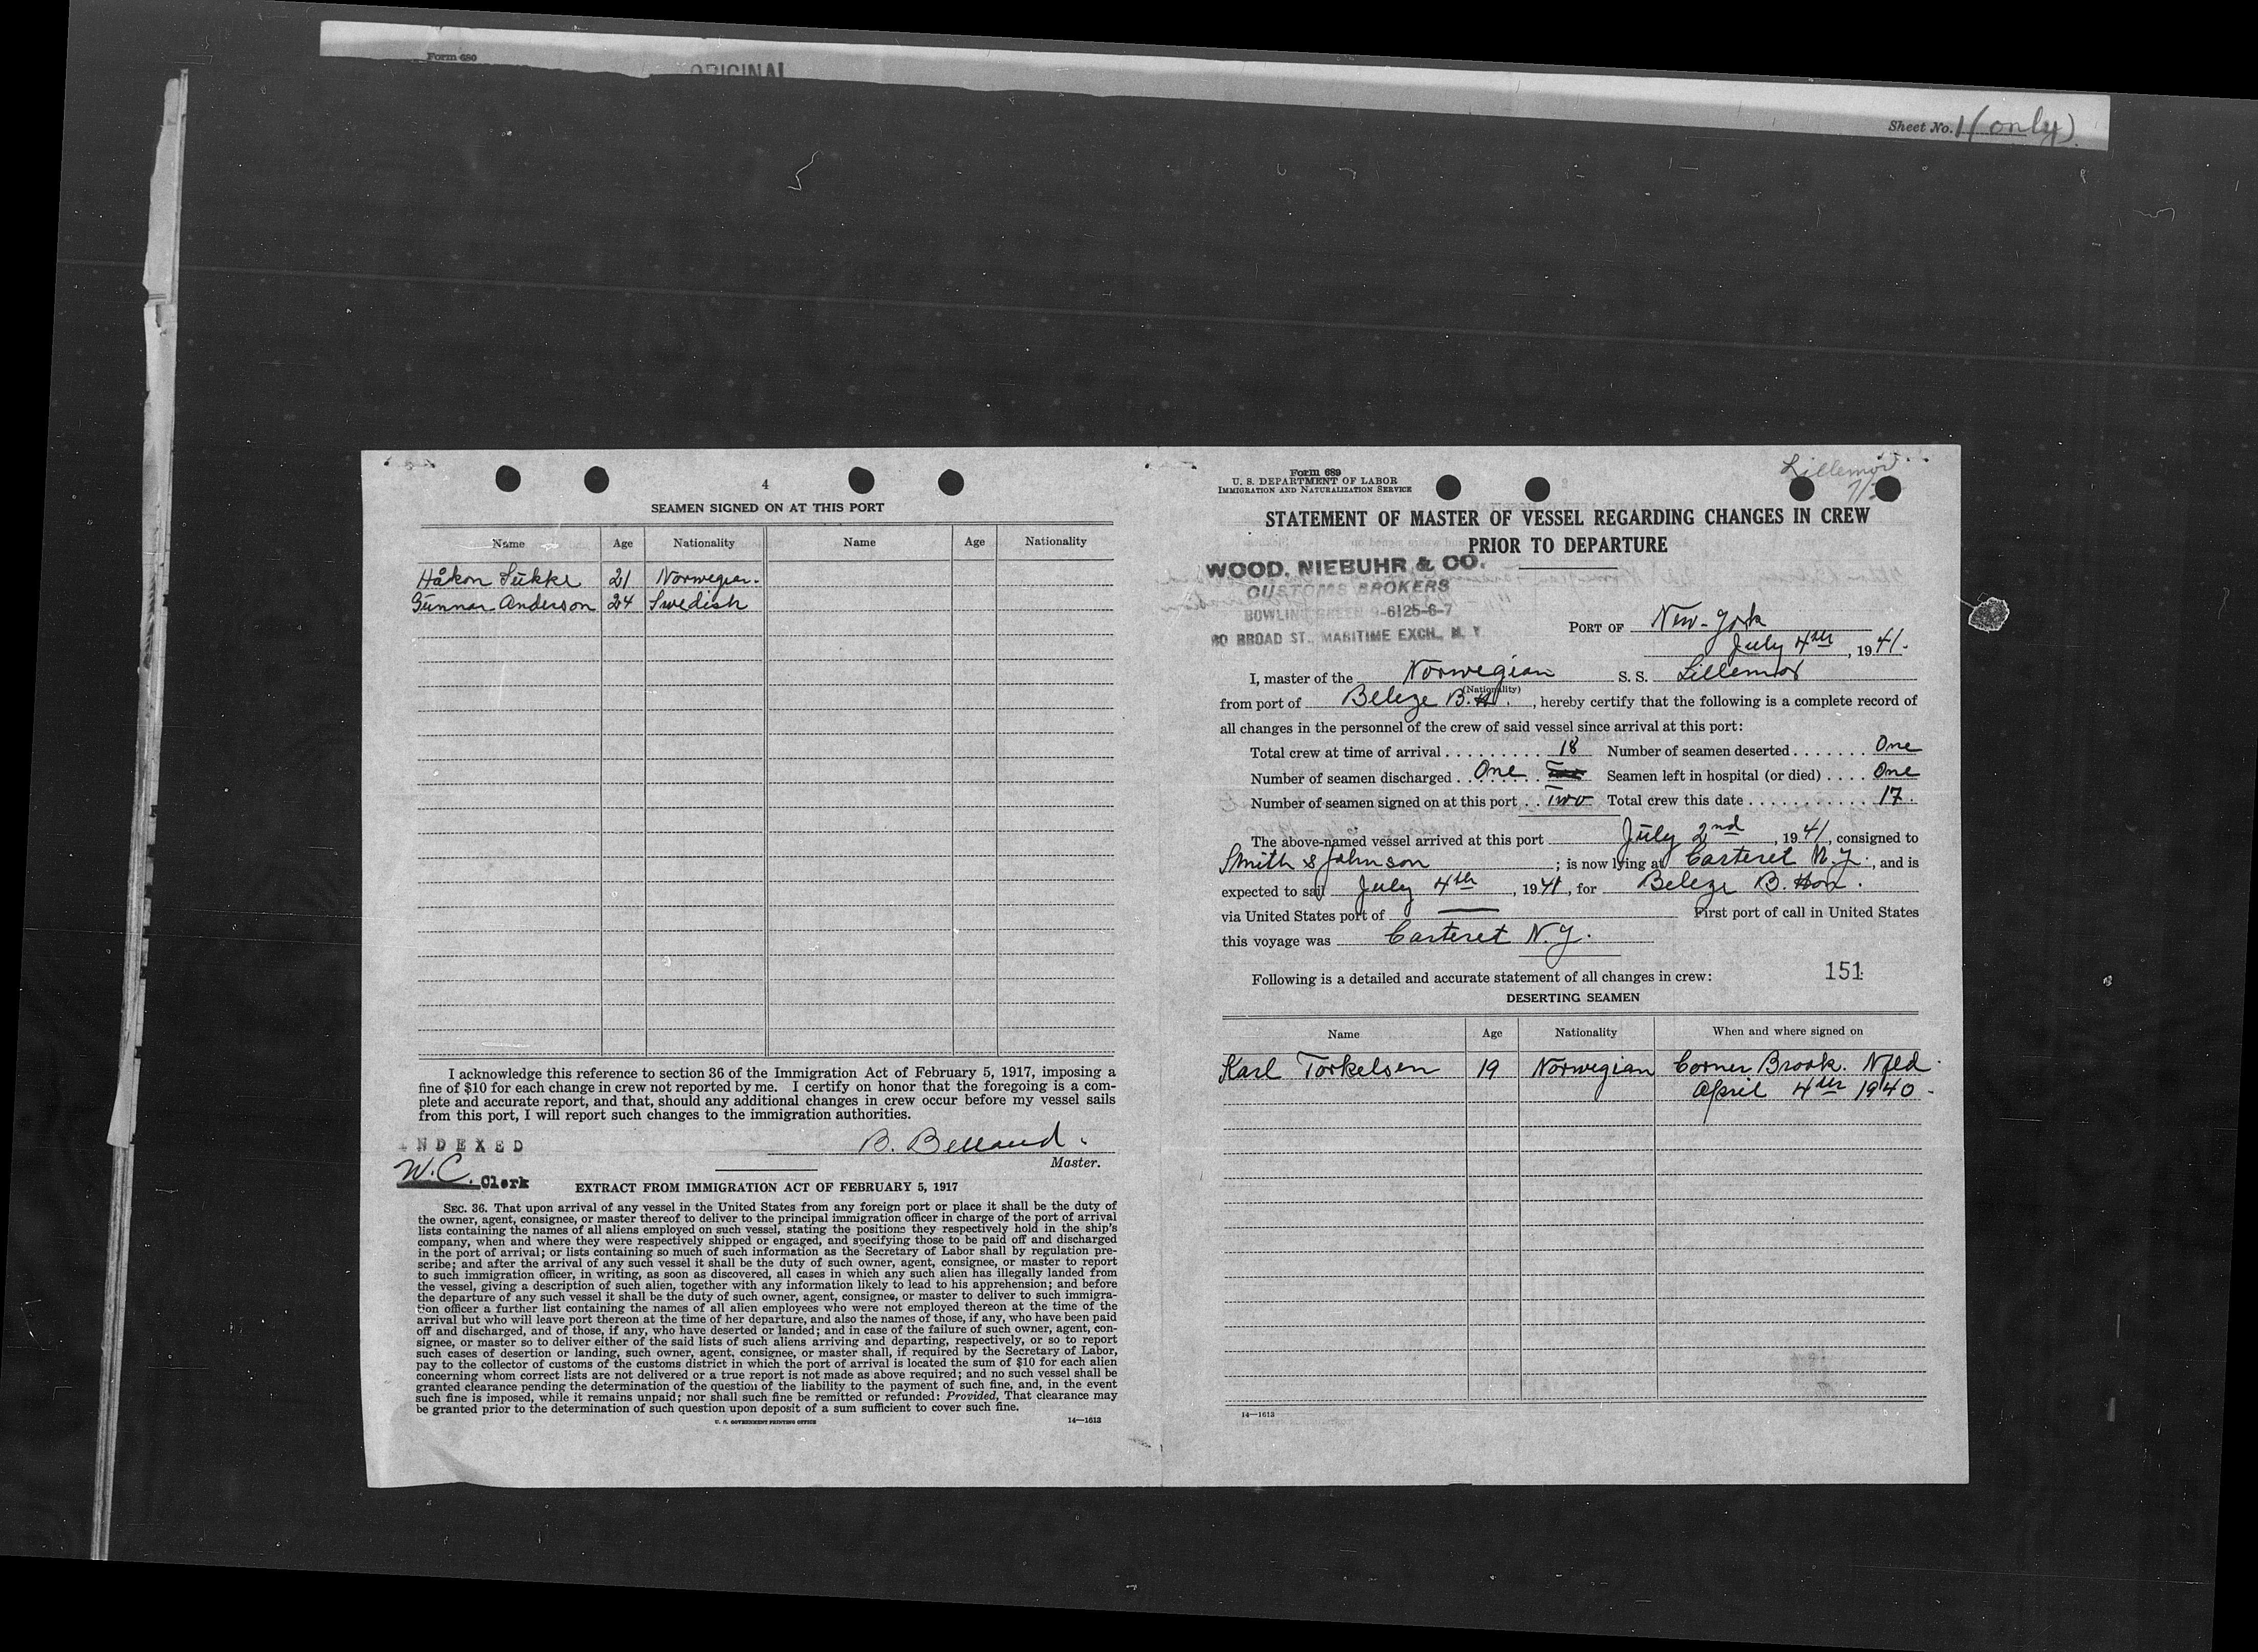 Form 680
ORIGINAL
Sheet No. 1 (only)
4
SEAMEN SIGNED ON AT THIS PORT
Name Age Nationality Name Age Nationality
Håkon 21 Norwegian.
Gunnar Anderson 24 Swedish
I acknowledge this reference to section 36 of the Immigration Act of February 5, 1917, imposing a
fine of $10 for each change in crew not reported by me. I certify on honor that the foregoing is a com-
plete and accurate report, and that, should any additional changes in crew occur before my vessel sails
from this port, I will report such changes to the immigration authorities.
INDEXED
B. Belland.
Master.
W.C. Clerk
EXTRACT FROM IMMIGRATION ACT OF FEBRUARY 5, 1917
SEC. 36. That upon arrival of any vessel in the United States from any foreign port or place it shall be the duty of
the owner, agent, consignee, or master thereof to deliver to the principal immigration officer in charge of the port of arrival
lists containing the names of all aliens employed on such vessel, stating the positions they respectively hold in the ship's
company, when and where they were respectively shipped or engaged, and specifying those to be paid off and discharged
in the port of arrival; or lists containing so much of such information as the Secretary of Labor shall by regulation pre-
scribe; and after the arrival of any such vessel it shall be the duty of such owner, agent, consignee, or master to report
to such immigration officer, in writing, as soon as discovered, all cases in which any such alien has illegally landed from
the vessel, giving a description of such alien, together with any information likely to lead to his apprehension; and before
the departure of any such vessel it shall be the duty of such owner, agent, consignee, or master to deliver to such immigra-
tion officer a further list containing the names of all alien employees who were not employed thereon at the time of the
arrival but who will leave port thereon at the time of her departure, and also the names of those, if any, who have been paid
off and discharged, and of those, if any, who have deserted or landed; and in case of the failure of such owner, agent, con-
signee, or master so to deliver either of the said lists of such aliens arriving and departing, respectively, or so to report
such cases of desertion or landing, such owner, agent, consignee, or master shall, if required by the Secretary of Labor,
pay to the collector of customs of the customs district in which the port of arrival is located the sum of $10 for each alien
concerning whom correct lists are not delivered or a true report is not made as above required; and no such vessel shall be
granted clearance pending the determination of the question of the liability to the payment of such fine, and, in the event
such fine is imposed, while it remains unpaid; nor shall such fine be remitted or refunded: Provided, That clearance may
be granted prior to the determination of such question upon deposit of a sum sufficient to cover such fine.
U. S. GOVERNMENT PRINTING OFFICE 14—1613
Lillemor
Form 689
U. S. DEPARTMENT OF LABOR
IMMIGRATION AND NATURALIZATION SERVICE
STATEMENT OF MASTER OF VESSEL REGARDING CHANGES IN CREW
PRIOR TO DEPARTURE
WOOD, NIEBUHR & CO.
CUSTOMS BROKERS
BOWLING GREEN 9-6125-6-7
80 BROAD ST., MARITIME EXCH., N. Y.
PORT OF New-York
July 4th, 1941.
I, master of the Norwegian S. S. Lillemor
(Nationality)
from port of Beleze B.H., hereby certify that the following is a complete record of
all changes in the personnel of the crew of said vessel since arrival at this port:
Total crew at time of arrival 18 Number of seamen deserted One
Number of seamen discharged One Seamen left in hospital (or died) One
Number of seamen signed on at this port Two Total crew this date 17.
The above-named vessel arrived at this port July 2nd, 1941, consigned to
Smith & Johnson; is now lying at Carteret N.J., and is
expected to sail July 4th, 1941, for Beleze B. Hon.
via United States port of — First port of call in United States
this voyage was Carteret N.J.
Following is a detailed and accurate statement of all changes in crew: 151
DESERTING SEAMEN
Name Age Nationality When and where signed on
Karl Torkelsen 19 Norwegian Corner Brook. Nfld.
April 4th 1940.
14—1613